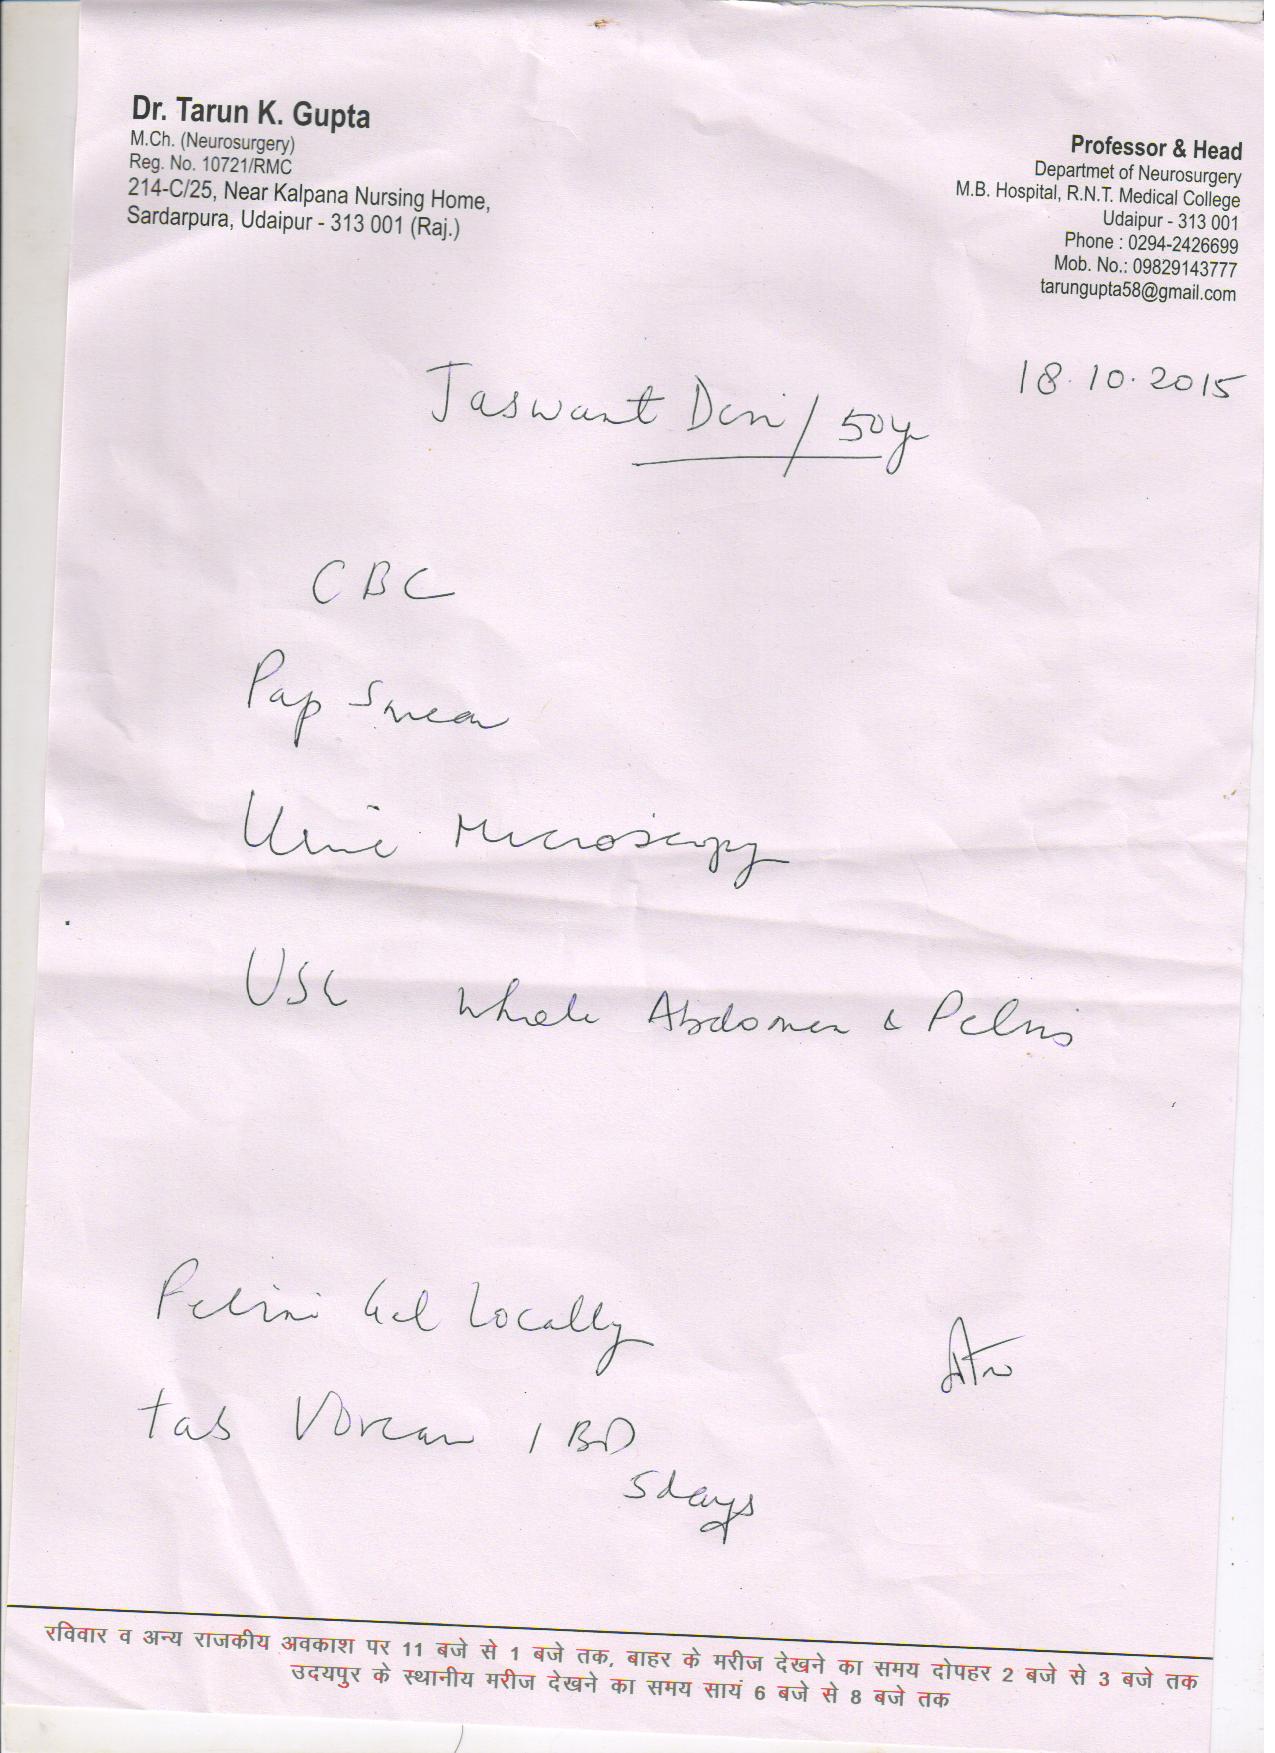 Dr. Tarun K. Gupta
M.Ch. (Neurosurgery)
Reg. No. 10721/RMC
214-C/25, Near Kalpana Nursing Home,
Sardarpura, Udaipur - 313 001 (Raj.)
Professor & Head
Departmet of Neurosurgery
M.B. Hospital, R.N.T. Medical College
Udaipur - 313 001
Phone : 0294-2426699
Mob. No.: 09829143777
tarungupta58@gmail.com
18.10.2015
Jaswant Devi / 50yr
CBC
Pap Smear
Urine Microscopy
USG Whole Abdomen & Pelvis
Gel Locally
tab 1 BD
5days
रविवार व अन्य राजकीय अवकाश पर 11 बजे से 1 बजे तक, बाहर के मरीज देखने का समय दोपहर 2 बजे से 3 बजे तक
उदयपुर के स्थानीय मरीज देखने का समय सायं 6 बजे से 8 बजे तक